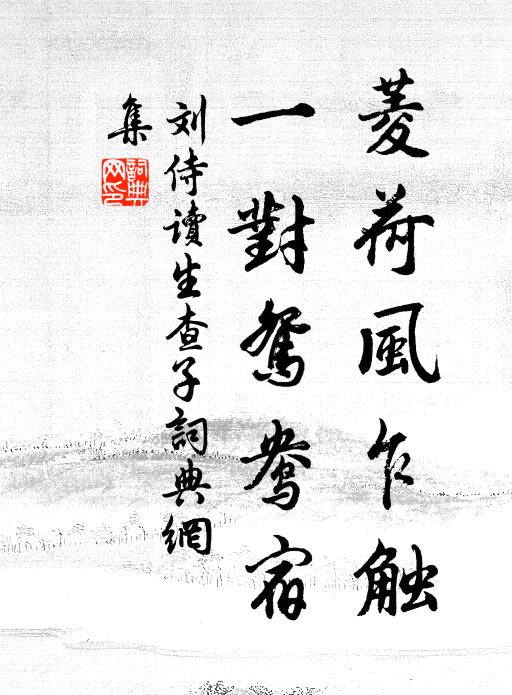 菱荷風乍触
一對鴛鴦宿
刘侍讀生查子詞典網
集
詞典網印